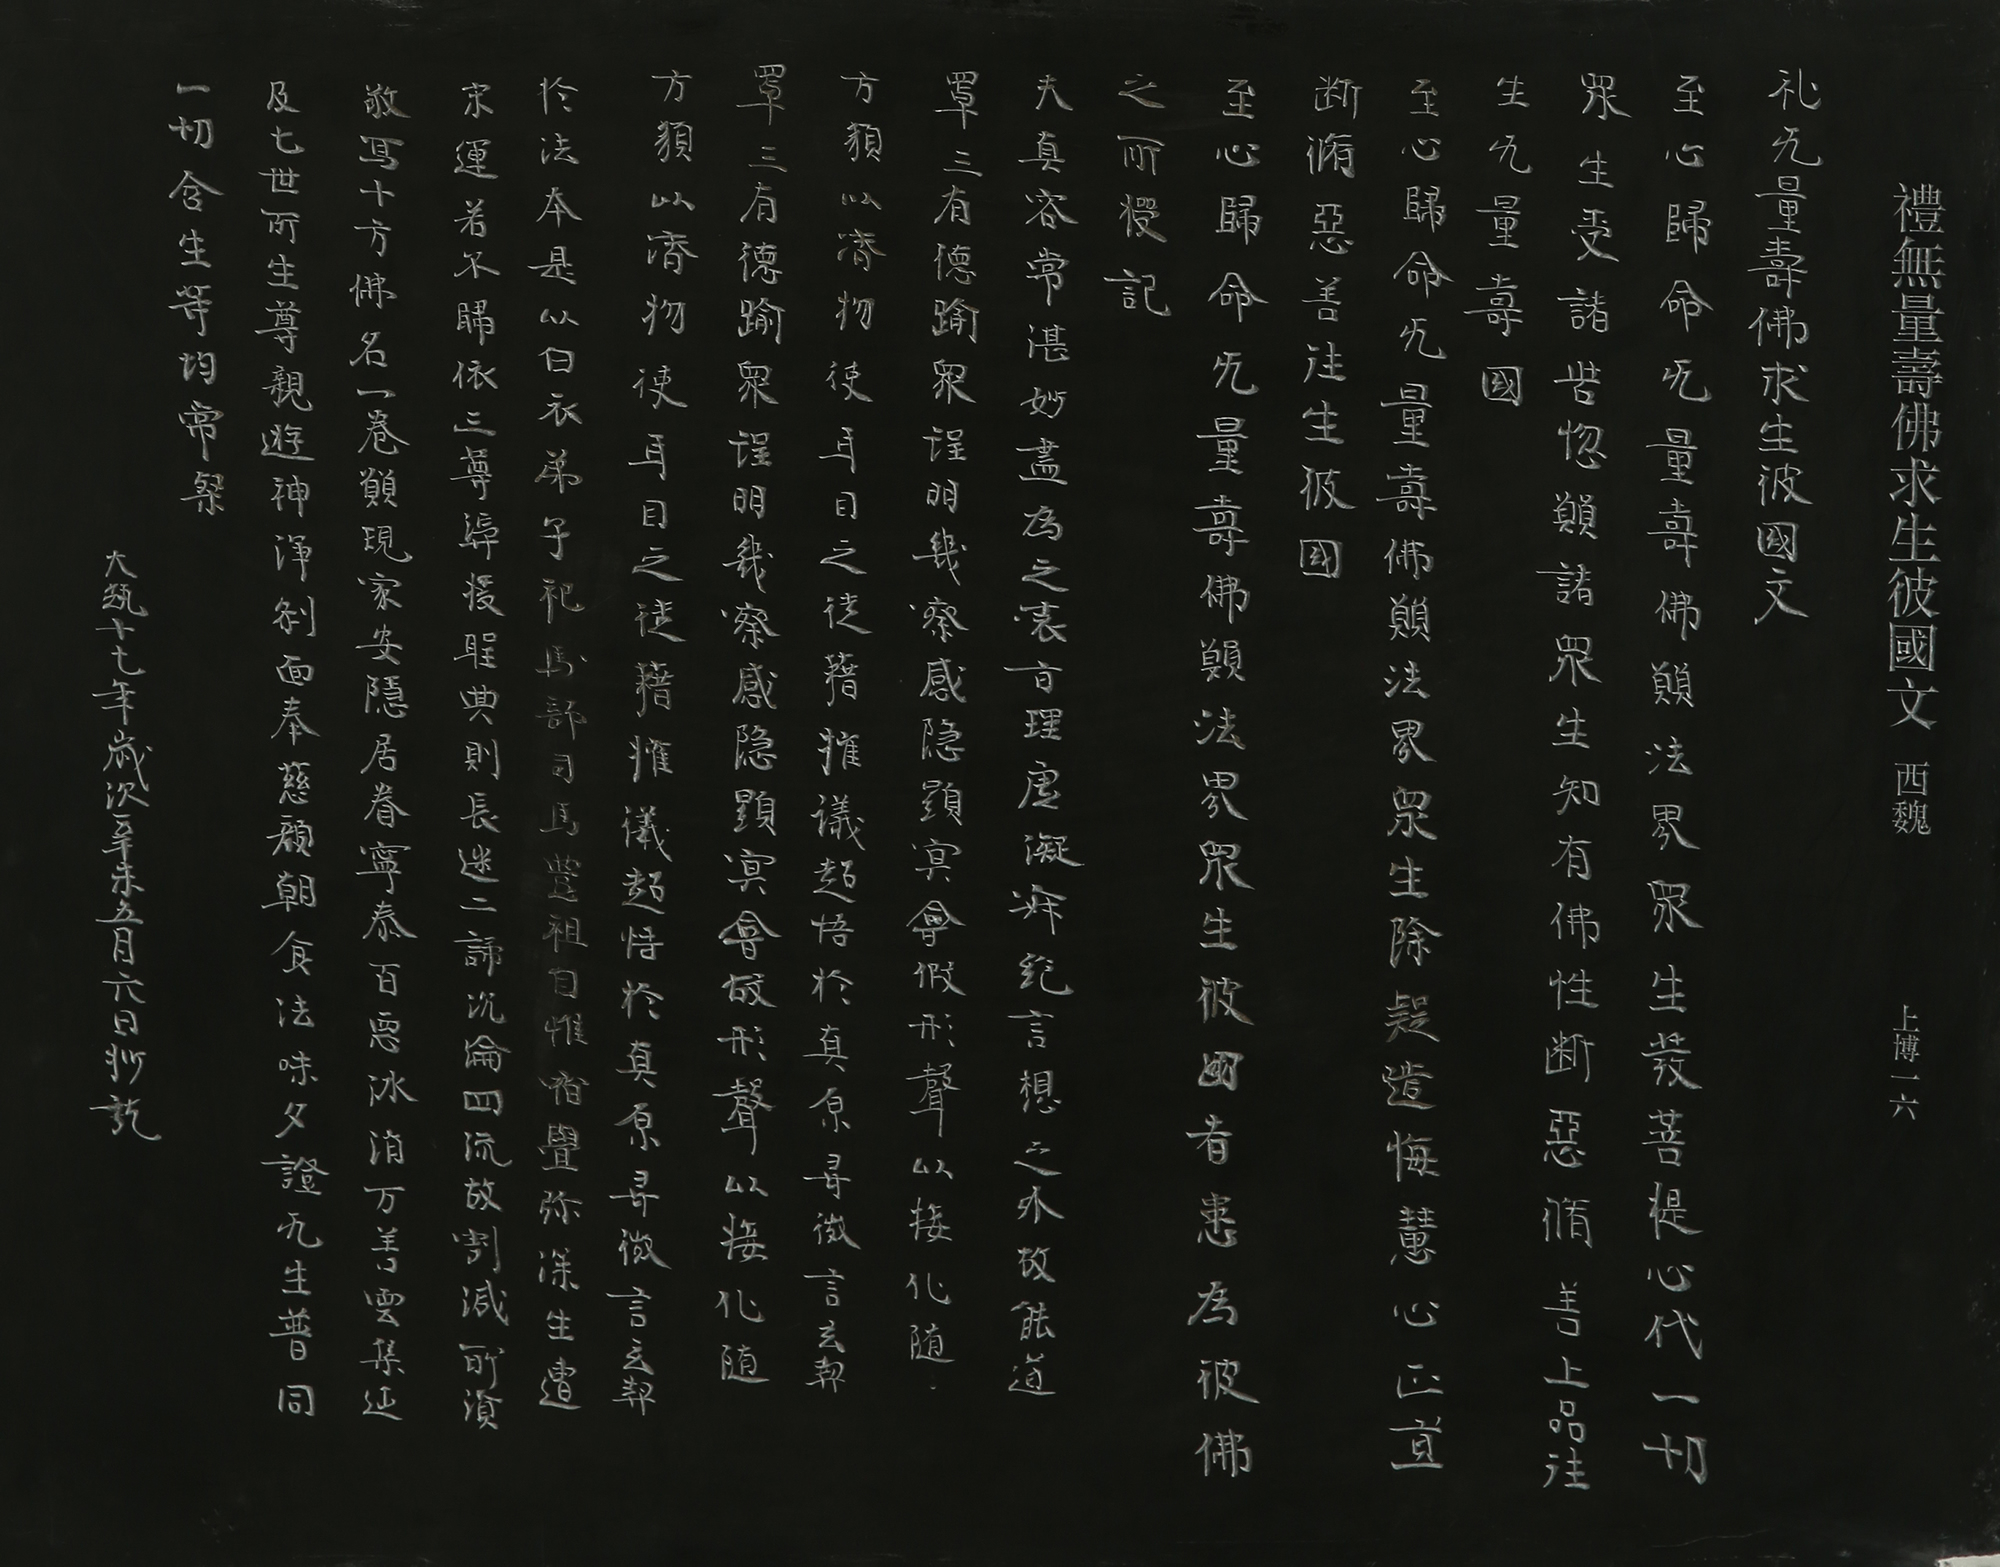 禮無量壽佛求生彼國文 西魏 上博一六
礼旡量壽佛求生彼國文
至心歸命旡量壽佛願法界眾生發菩提心代一切
眾生受諸苦惚願諸眾生知有佛性断惡脩善上品往
生旡量壽國
至心歸命旡量壽佛願法界眾生除疑造悔慧心正直
断脩惡善往生彼國
至心歸命旡量壽佛願法界眾生彼國者悉為彼佛
之所授記
夫真容常湛妙盡為之裏方理虚凝㝛絶言想之外故能道
罩三有德踰眾聖明幾察感隐顕㝠會假形聲以接化随
方類以濟物使耳目之徒藉權議超悟於真原尋微言玄契
罩三有德踰眾聖明幾察感隐顕㝠會故形聲以接化随
方類以濟物使耳目之徒藉權儀超悟於真原尋微言玄契
於法本是以白衣弟子祀馬部司馬豐祖自惟宿舋弥深生遭
末運若不歸依三尊歸授聖典則長迷二諦沉淪四流故割減所資
敬冩十方佛名一卷願現家安隱居眷寧泰百惡冰消万善雲集延
及七世所生尊親遊神淨剎面奉慈顏朝食法味夕證旡生普同
一切含生等均常粲
大魏十七年歲次辛未五月六日抄訖